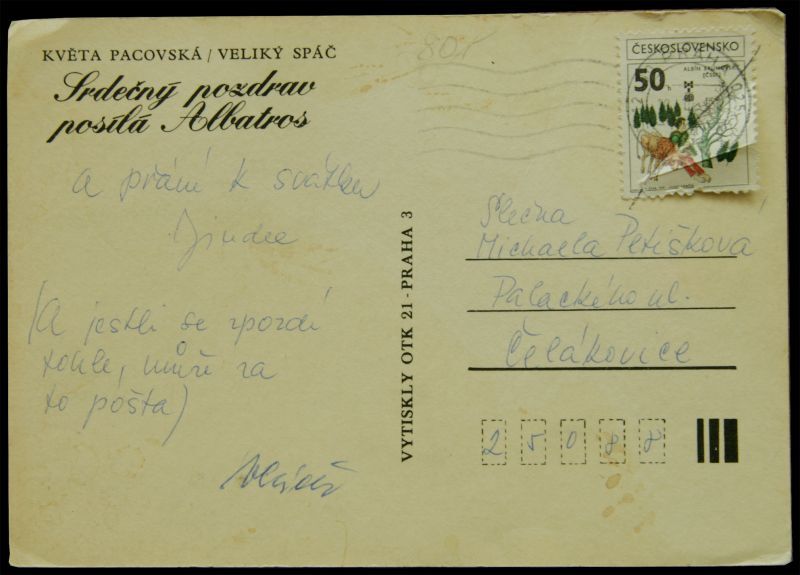 KVĚTA PACOVSKÁ / VELIKÝ SPÁČ
Srdečný pozdrav
posílá Albatros
a přání k svátku
Jindra
(A jestli se zpozdí
tohle, může za
to pošta)
VYTISKLY OTK 21 - PRAHA 3
ČESKOSLOVENSKO
50 h
ALBÍN BRUNOVSKÝ
Slečna
Michaela Petišková
Palackého ul.
Čelákovice
25088